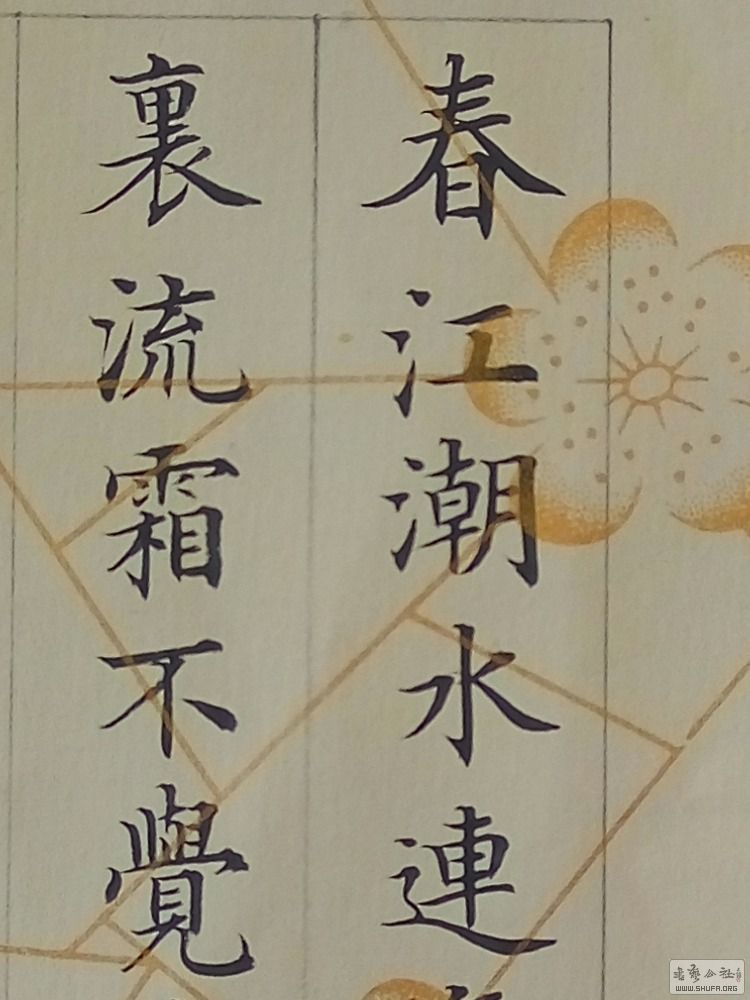 春江潮水連
裏流霜不覺
书法公社
WWW.SHUFA.ORG